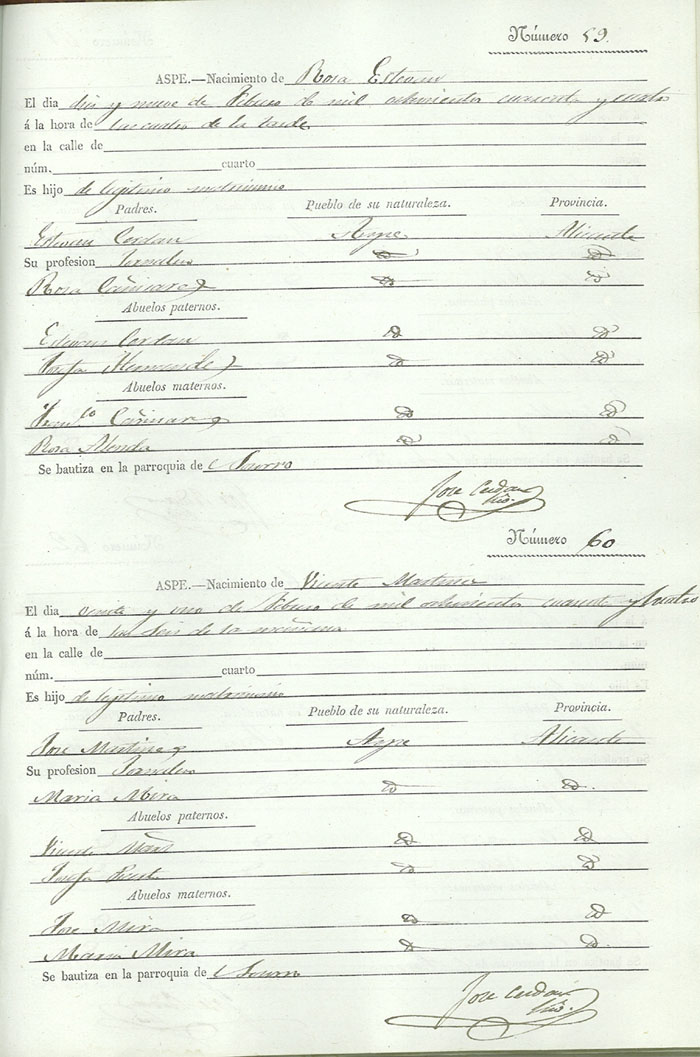 Número 59.
ASPE.—Nacimiento de Rosa Estevan
El dia diez y nueve de Febrero de mil ochocientos cuarenta y cuatro
á la hora de las cuatro de la tarde
en la calle de
núm. cuarto
Es hijo de legitimo matrimonio
Padres. Pueblo de su naturaleza. Provincia.
Estevan Cerdan Aspe Alicante
Su profesion Jornalero id
Rosa Cañizares id id
Abuelos paternos.
Estevan Cerdan id id
Josefa Hernandez id id
Abuelos maternos.
Franco Cañizares id id
Rosa Alenda id id
Se bautiza en la parroquia de Socorro
Jose Cerdan
Srio.
Número 60
ASPE.—Nacimiento de Vicente Martinez
El dia veinte y uno de Febrero de mil ochocientos cuarenta y cuatro
á la hora de las seis de la mañana
en la calle de
núm. cuarto
Es hijo de legitimo matrimonio
Padres. Pueblo de su naturaleza. Provincia.
Jose Martinez Aspe Alicante
Su profesion Jornalero
Maria Mira id id.
Abuelos paternos.
Vicente id id
Josefa id id
Abuelos maternos.
Jose Mira id id
Maria Mira id id
Se bautiza en la parroquia de Socorro
Jose Cerdan
Srio.